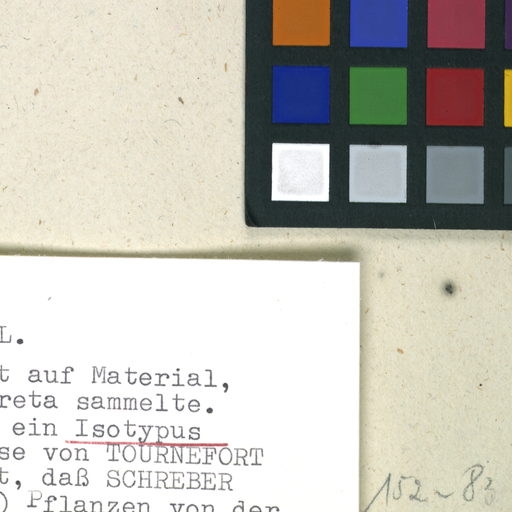 L.
t auf Material,
reta sammelte.
ein Isotypus
se von TOURNEFORT
t, daß SCHREBER
) Pflanzen von der
152-83